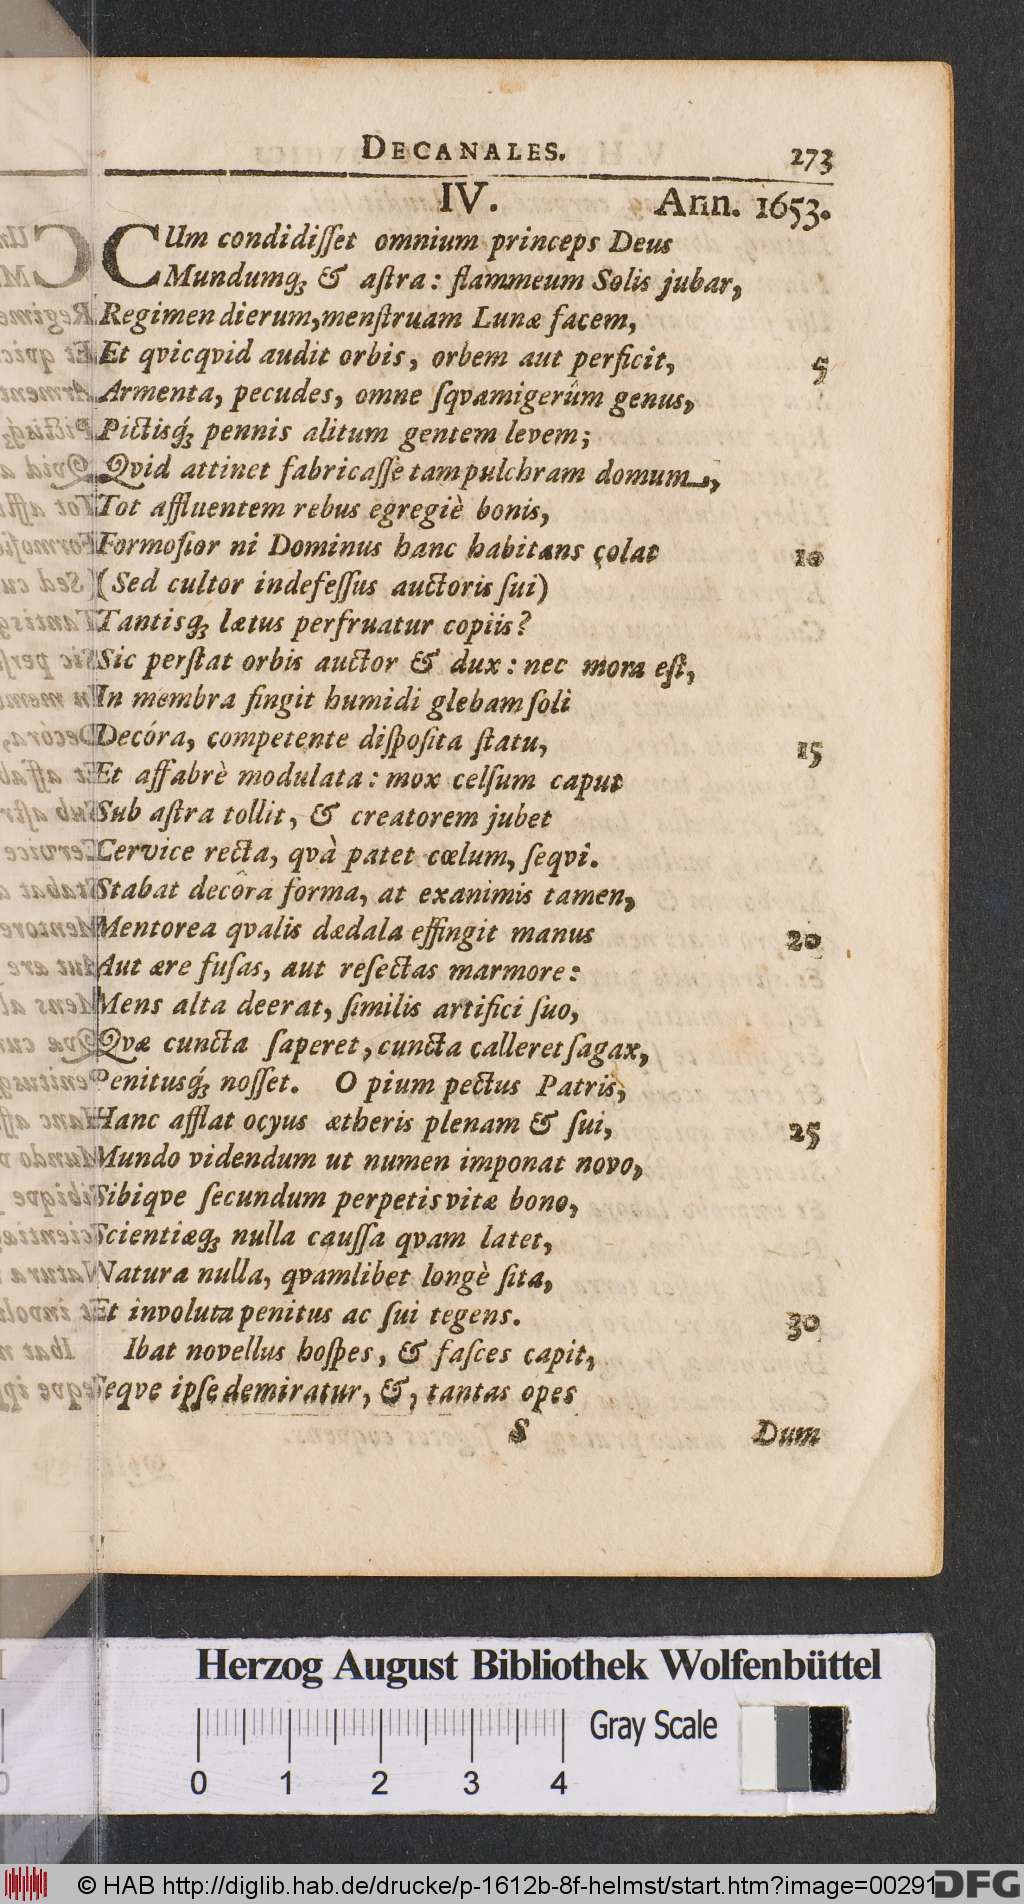 DECANALES. 273
IV. Ann. 1653.
CUm condidiſſet omnium princeps Deus
Mundumq́; & aſtra: flammeum Solis jubar,
Regimen dierum, menſtruam Lunæ facem,
Et qvicqvid audit orbis, orbem aut perficit, 5
Armenta, pecudes, omne ſqvamigerûm genus,
Pictisq́; pennis alitum gentem levem;
Qvid attinet fabricaſſe tam pulchram domum,
Tot affluentem rebus egregiè bonis,
Formoſior ni Dominus hanc habitans colat 10
(Sed cultor indefeſſus auctoris ſui)
Tantisq; lætus perfruatur copiis?
Sic perſtat orbis auctor & dux: nec mora eſt,
In membra fingit humidi glebam ſoli
Decóra, competente diſpoſita ſtatu, 15
Et affabrè modulata: mox celſum caput
Sub aſtra tollit, & creatorem jubet
Cervice recta, qvà patet cœlum, ſeqvi.
Stabat decôra forma, at exanimis tamen,
Mentorea qvalis dædala effingit manus 20
Aut ære fuſas, aut reſectas marmore:
Mens alta deerat, ſimilis artifici ſuo,
Qvæ cuncta ſaperet, cuncta calleret ſagax,
Penitusq́; noſſet. O pium pectus Patris,
Hanc afflat ocyus ætheris plenam & ſui, 25
Mundo videndum ut numen imponat novo,
Sibiqve ſecundum perpetis vitæ bono,
Scientiæq; nulla cauſſa qvam latet,
Natura nulla, qvamlibet longè ſita,
Et involuta penitus ac ſui tegens. 30
Ibat novellus hoſpes, & faſces capit,
Seqve ipſe demiratur, &, tantas opes
S Dum
Herzog August Bibliothek Wolfenbüttel
Gray Scale
0 1 2 3 4
© HAB http://diglib.hab.de/drucke/p-1612b-8f-helmst/start.htm?image=00291
DFG